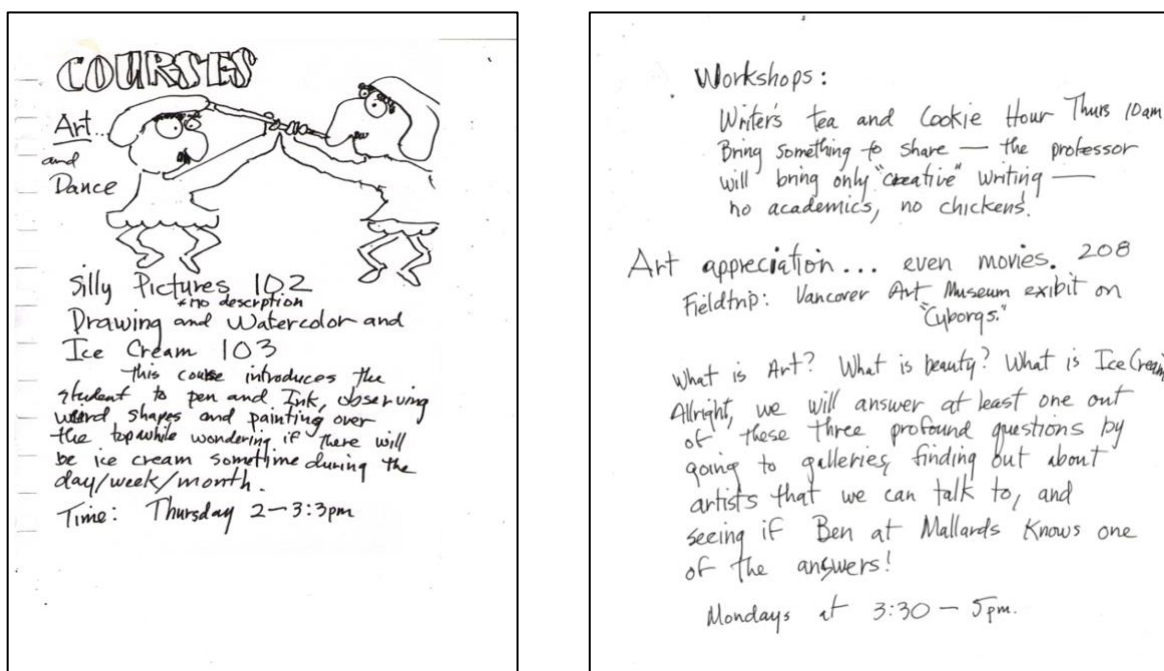 COURSES
Art...
and
Dance
Silly Pictures 102
*no descrption
Drawing and Watercolor and
Ice Cream 103
This course introduces the
student to pen and Ink, observing
weird shapes and painting over
the top while wondering if there will
be ice cream sometime during the
day/week/month.
Time: Thursday 2-3:3pm
Workshops:
Writer's tea and Cookie Hour Thurs 10am
Bring something to share — the professor
will bring only "creative" writing —
no academics, no chickens.
Art appreciation... even movies. 208
Fieldtrip: Vancover Art Museum exibit on
"Cyborgs."
What is Art? What is beauty? What is Ice Cream
Allright, we will answer at least one out
of these three profound questions by
going to galleries, finding out about
artists that we can talk to, and
seeing if Ben at Mallards knows one
of the answers!
Mondays at 3:30 - 5pm.